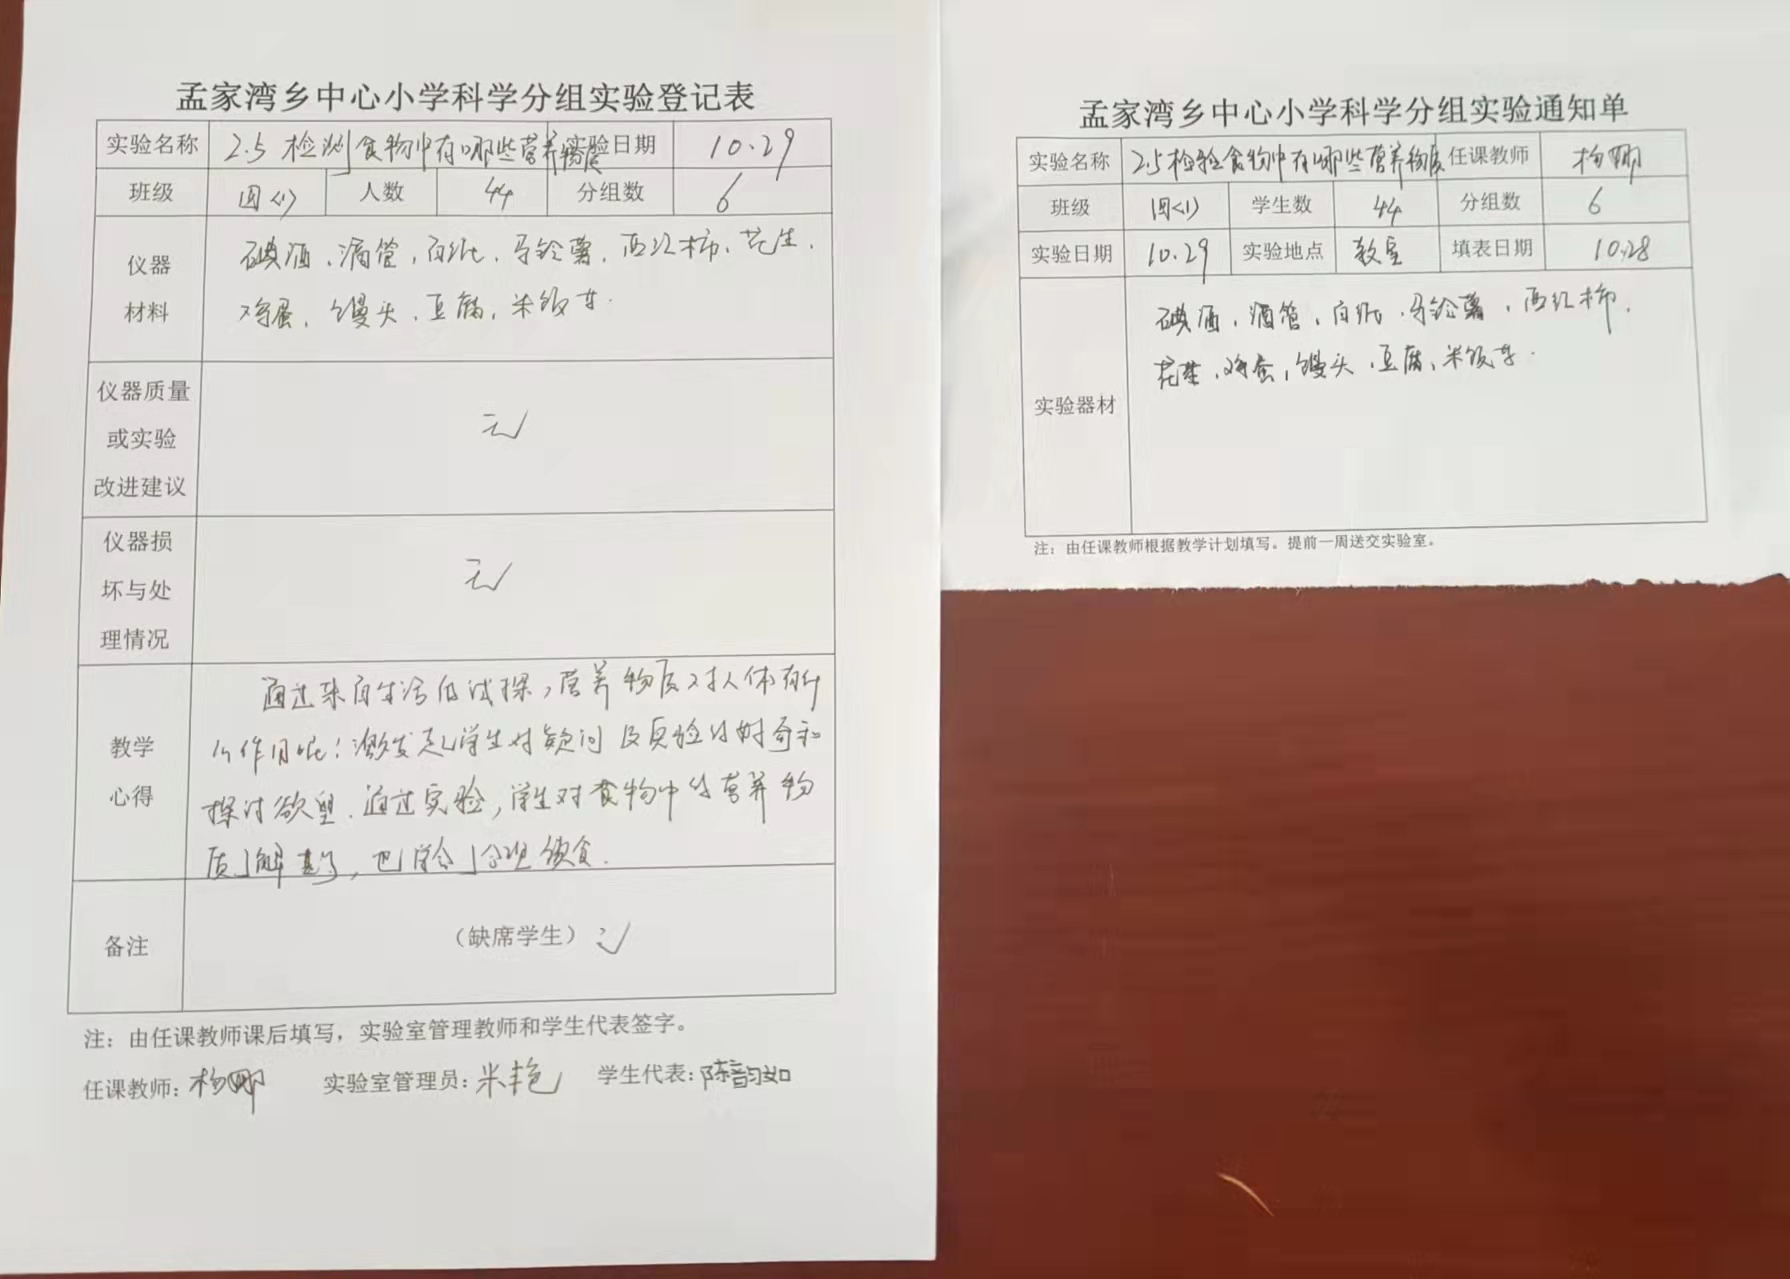 孟家湾乡中心小学科学分组实验登记表
实验名称 2.5 检测食物中有哪些营养物质 实验日期 10.29
班级 四(1) 人数 44 分组数 6
仪器 碘酒、滴管、白纸、马铃薯、西红柿、花生、
材料 鸡蛋、馒头、豆腐、米饭等.
仪器质量
或实验 无
改进建议
仪器损
坏与处 无
理情况
通过来自生活的试探,营养物质对人体有什
教学 么作用呢!激发起学生对疑问及实验的好奇和
心得 探讨欲望.通过实验,学生对食物中的营养物
质了解甚多,也学会了合理饮食.
备注 (缺席学生) 无
注:由任课教师课后填写,实验室管理教师和学生代表签字。
任课教师:杨娜 实验室管理员:米艳 学生代表:陈韵如
孟家湾乡中心小学科学分组实验通知单
实验名称 2.5检验食物中有哪些营养物质 任课教师 杨娜
班级 四(1) 学生数 44 分组数 6
实验日期 10.29 实验地点 教室 填表日期 10.28
碘酒、滴管、白纸、马铃薯、西红柿、
花生、鸡蛋、馒头、豆腐、米饭等.
实验器材
注:由任课教师根据教学计划填写。提前一周送交实验室。